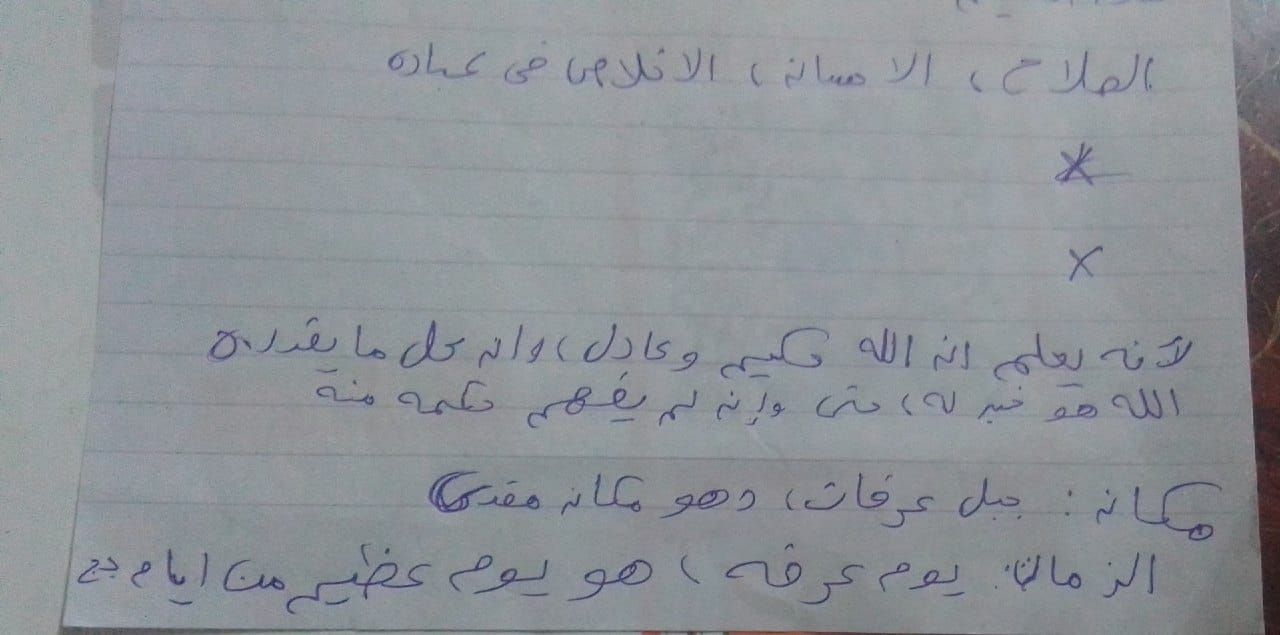 الصلاح ، الاحسان ، الاخلاص في عباده
×
×
لأنه يعلم ان الله حكيم وعادل ، وان كل ما يقدره
الله هو خير له ، حتى وإن لم يفهم حكمه منه
مكان : جبل عرفات ، وهو مكان مقدس
الزمان : يوم عرفه ، هو يوم عظيم من ايام حج